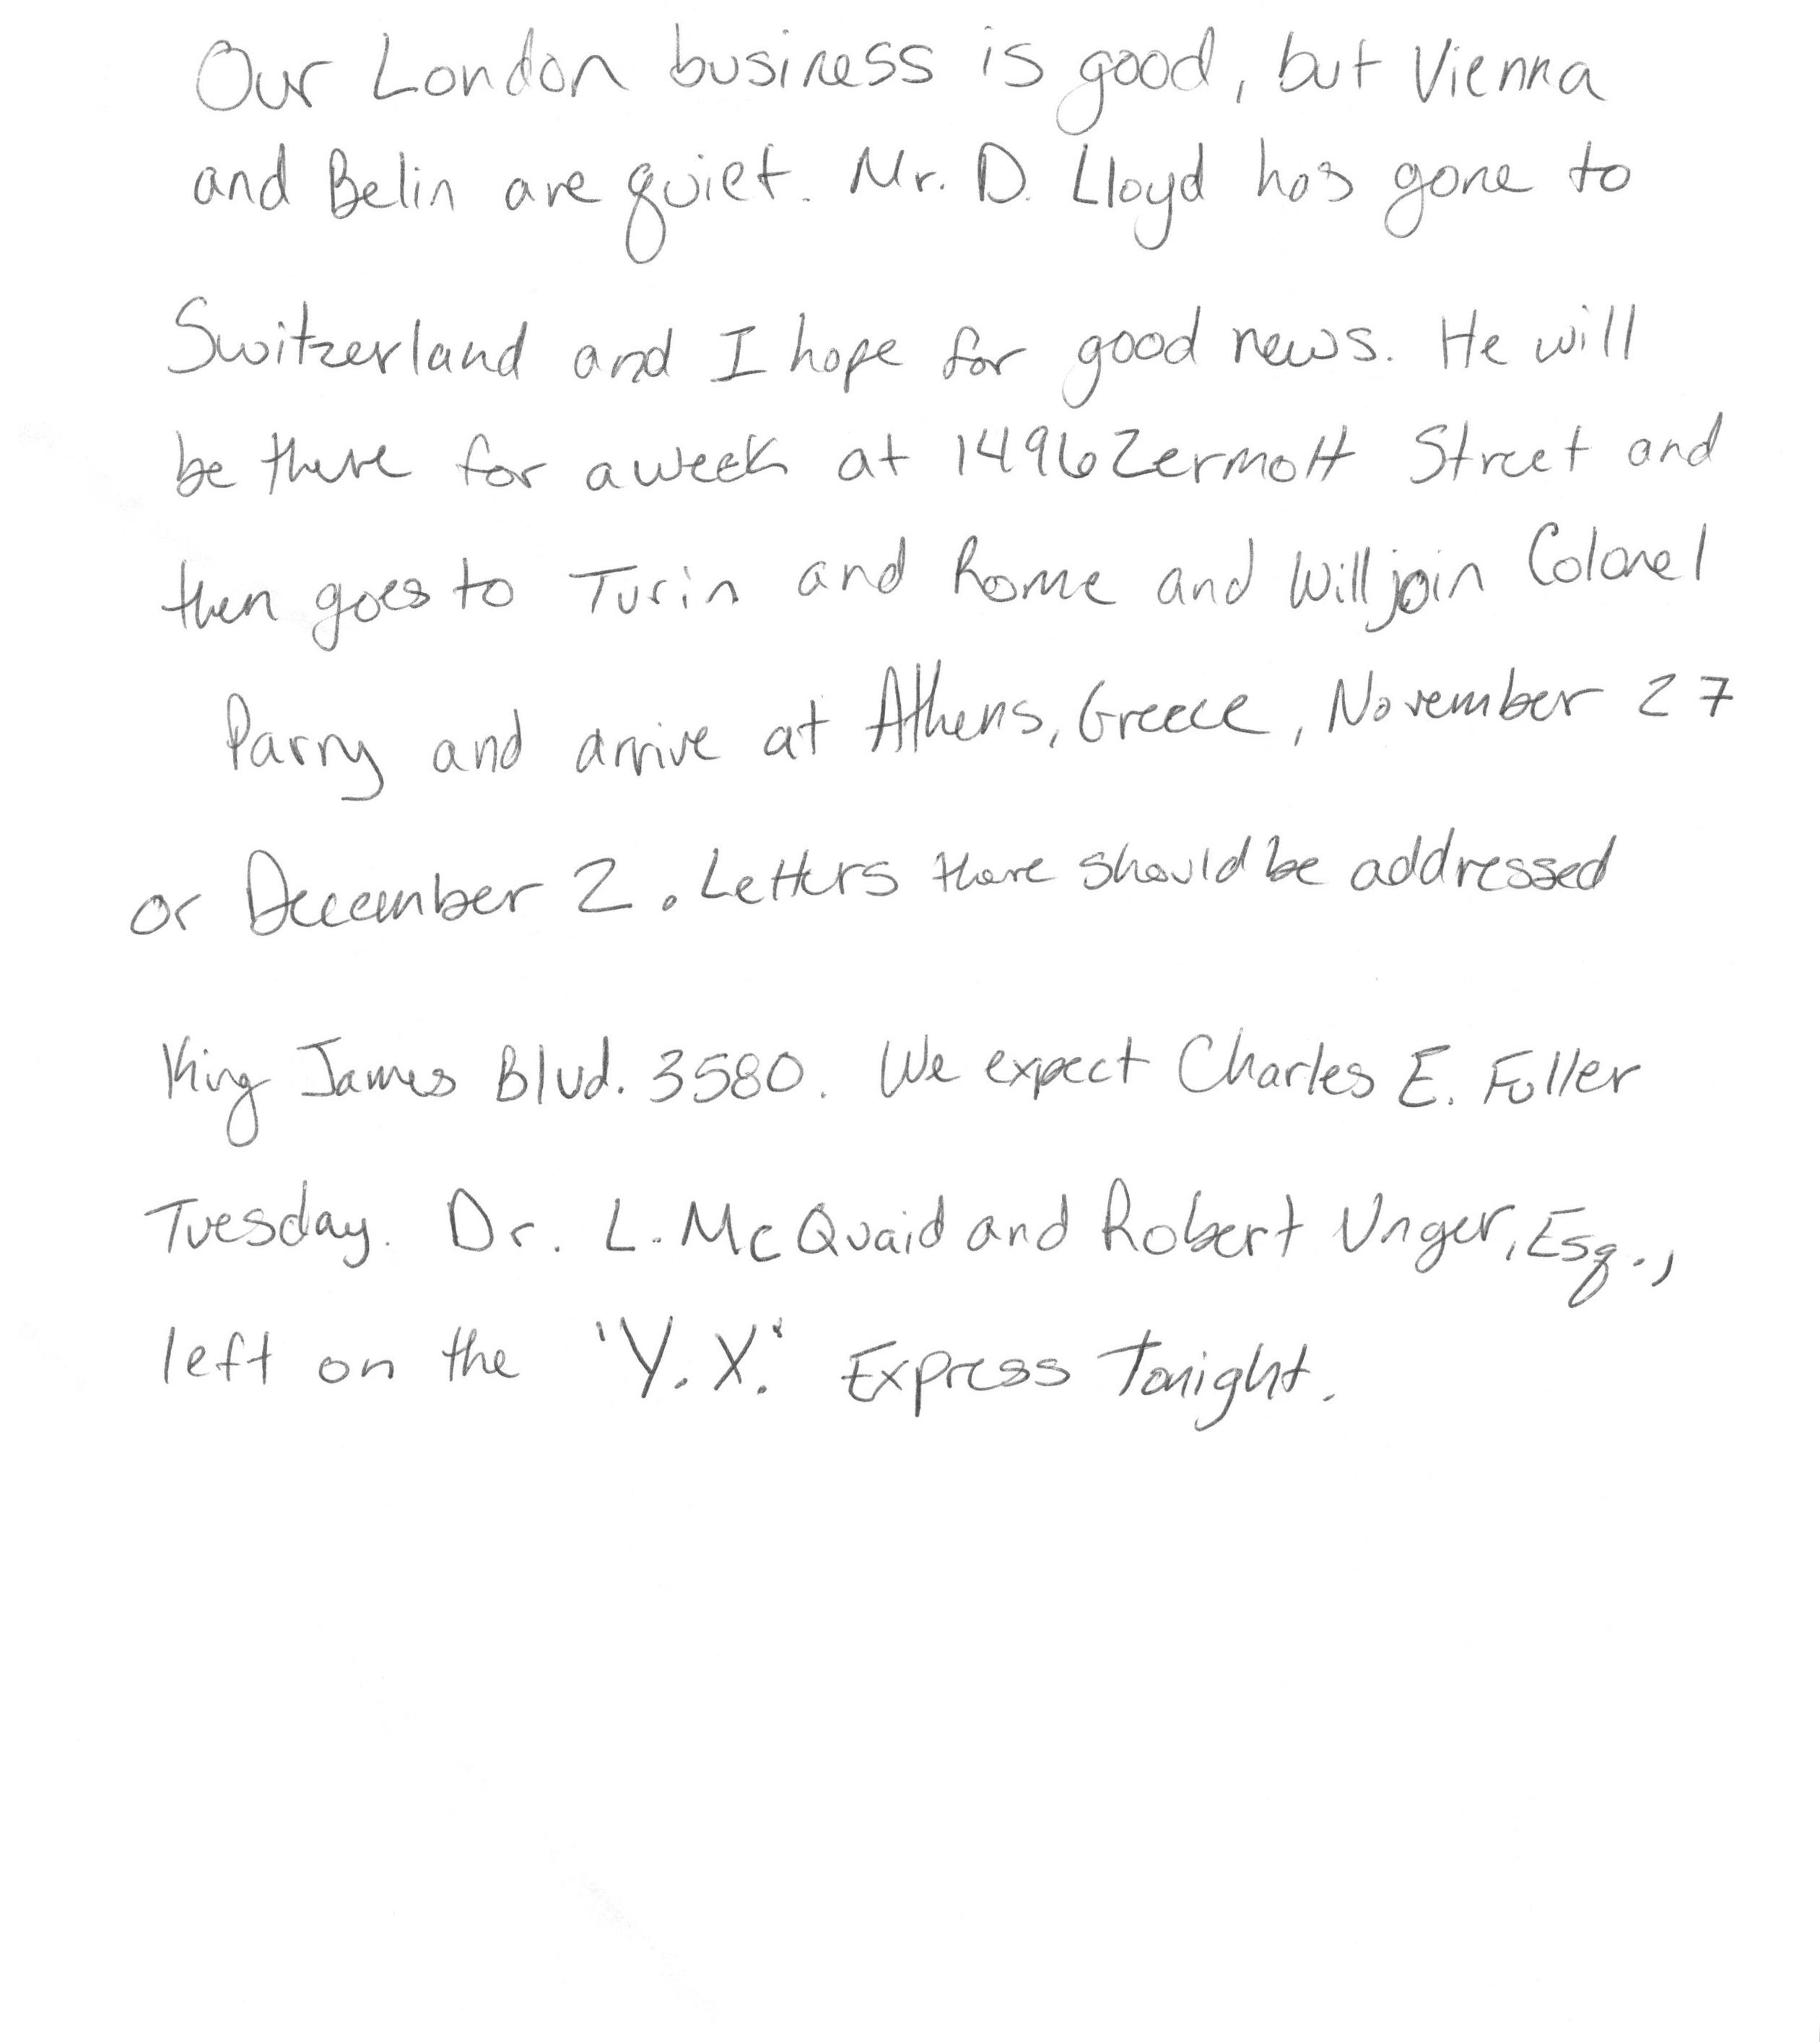 Our London business is good, but Vienna
and Belin are quiet. Mr. D. Lloyd has gone to
Switzerland and I hope for good news. He will
be there for a week at 1496 Zermott Street and
then goes to Turin and Rome and will join Colonel
Parry and arrive at Athens, Greece, November 27
or December 2. Letters there should be addressed
King James Blvd. 3580. We expect Charles E. Fuller
Tuesday. Dr. L. McQuaid and Robert Unger, Esq.,
left on the "Y.X." Express Tonight.